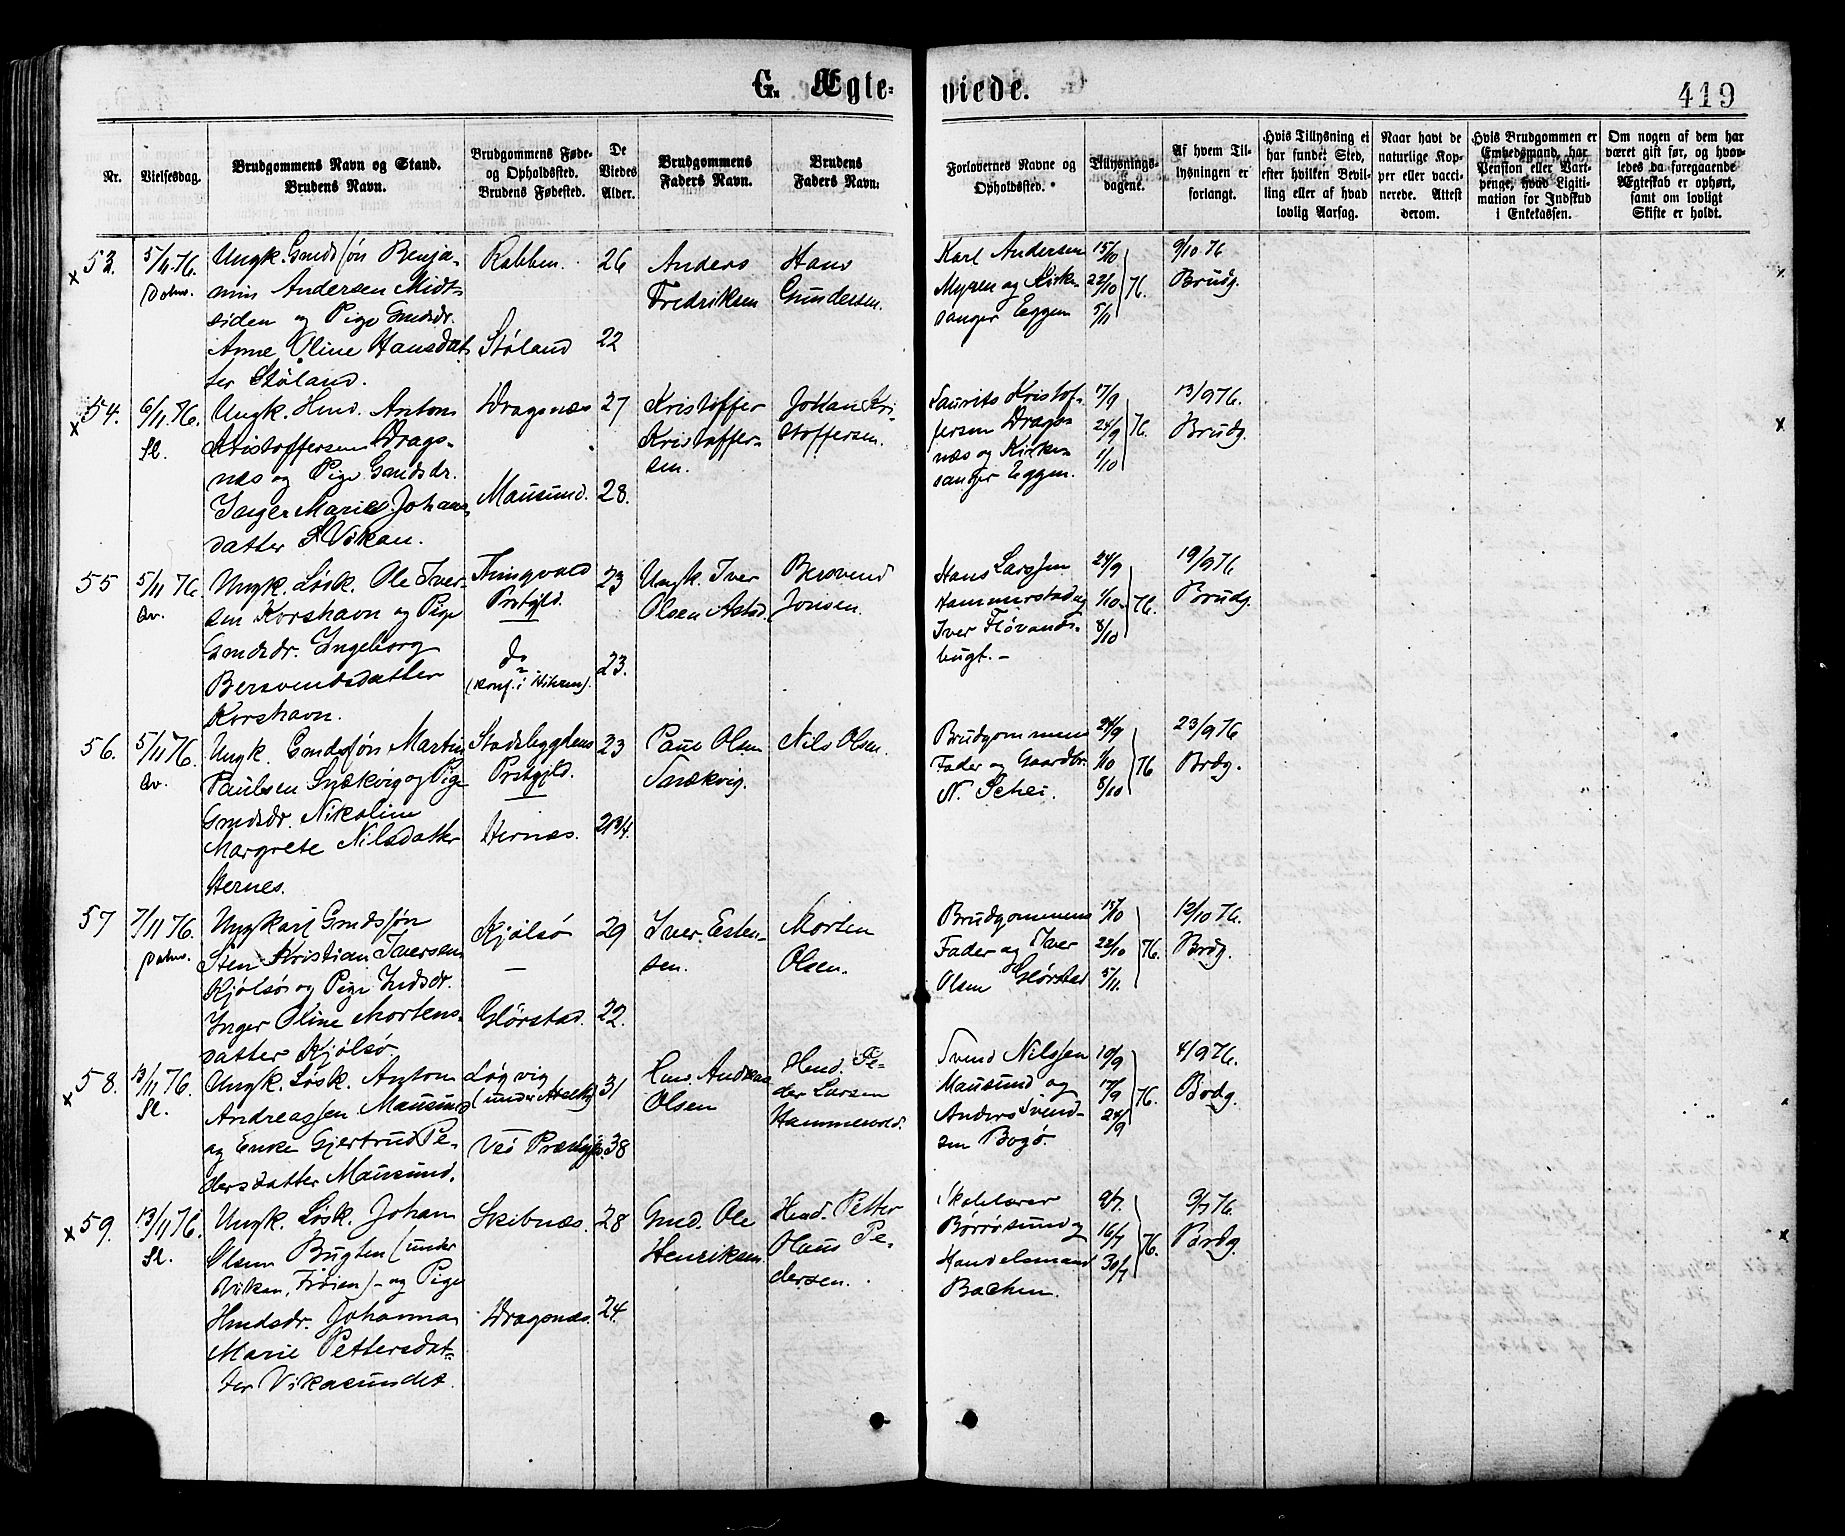 G. Ægte-
viede.
419
Nr.
Vielsesdag.
Brudgommens Navn og Stand.
Brudens Navn.
Brudgommens Føde-
og Opholdssted.
Brudens Fødested.
De
Viedes
Alder.
Brudgommens
Faders Navn.
Brudens
Faders Navn.
Forlovernes Navne og
Opholdssted.
Tillysnings-
dagene.
Af hvem Til-
lysningen er
forlangt.
Hvis Tillysning ei
har fundet Sted,
efter hvilken Bevil-
ling eller af hvad
lovlig Aarsag.
Naar havt de
naturlige Kop-
per eller vacci-
nerede. Attest
derom.
Hvis Brudgommen er
Embedsmand, har
Pension eller Vart-
penge, hvad Ligiti-
mation for Indskud
i Enkekassen.
Om nogen af dem har
været gift før, og hvor-
ledes da foregaaende
Ægteskab er ophørt,
samt om lovligt
Skifte er holdt.
x 53.
5/11 76.
Ungk. Gmdssøn Benja-
min Andersen Midt-
siden og Pige Gmdsdr.
Anne Oline Hansdat-
ter Støland.
Rabben.
Støland
26
22
Anders
Fredriksen
Hans
Gundersen.
Karl Andersen
Myren og Kirke-
sanger Eggen
15/10
22/10
5/11
76.
9/10 76
Brudg.
x 54.
6/11 76.
Sl.
Ungk. Hmd. Anton
Kristoffersen Drags-
næs og Pige Gmdsdr.
Inger Marie Johans
datter S Vikan.
Dragsnæs
Mausund.
27
28.
Kristoffer
Kristoffer-
sen.
Johan Kri-
stoffersen.
Laurits Kristof-
fersen Drags-
næs og Kirke-
sanger Eggen.
17/9
24/9
1/10
76.
13/9 76.
Brudg.
55
5/11 76.
Qv.
Ungk. Løsk. Ole Iver-
sen Korshavn og Pige
Gmdsdr. Ingeborg
Bersvendsdatter
Korshavn.
Thingvold
Prstgjld.
do
(konf. i Hitteren).
23
23.
Ungk. Iver
Olsen Astad.
Bersvend
Jonsen.
Hans Larssen
Hammerstad og
Iver Fløvands-
bugt.
24/9
1/10
8/10
76.
19/9 76
Brudg.
56.
5/11 76.
Qv.
Ungk. Gmdssøn Martin
Paulsen Snækvig og Pige
Gmdsdr. Nikoline
Margrete Nilsdatter
Hernes.
Stadsbygdens
Prstgjld.
Hernæs.
23
Paul Olsen
Snækvig.
Nils Olsen.
Brudgommens
Fader og Gaardbr.
N. Schei.
24/9
1/10
8/10
76
23/9 76
Brdg.
57
7/11 76.
Ungkarl Gmdssøn
Sten Kristian Iversen
Kjølsø og Pige Indsdr.
Inger Oline Mortens-
datter Kjølsø.
Kjølsø
Glørstad.
29
22.
Iver Esten-
sen.
Morten
Olsen.
Brudgommens
Fader og Iver
Olsen Glørstad
15/10
22/10
5/11.
76.
12/10 76.
Brdg.
x 58.
13/11 76.
Sl.
Ungk. Løsk. Anton
Andreassen Mausund
og Enke Gjertrud Pe-
dersdatter Mausund.
Løgvig
Veø Præstgj.
31
38
Hmd. Andreas
Olsen
Hmd. Pe-
der Larsen
Hammervold.
Svend Nilssen
Mausund og
Anders Svend-
sen Bogø.
10/9
17/9
24/9
76.
4/9 76.
Brdg.
x 59.
13/11 76.
Sl.
Ungk. Løsk. Johan
Olsen Bugten (under
Vikan, Frøien) og Pige
Hmdsdr. Johanna
Marie Pettersdat-
ter Vikasundet.
Skibnæs.
Dragsnæs.
28
24.
Gmd. Ole
Henriksen
Hmd. Petter
Olaus Pe-
dersen.
Skolelærer
Børrøsund og
Handelsmand
Bachen.
9/7.
16/7
30/7
76.
9/7 76.
Brdg.